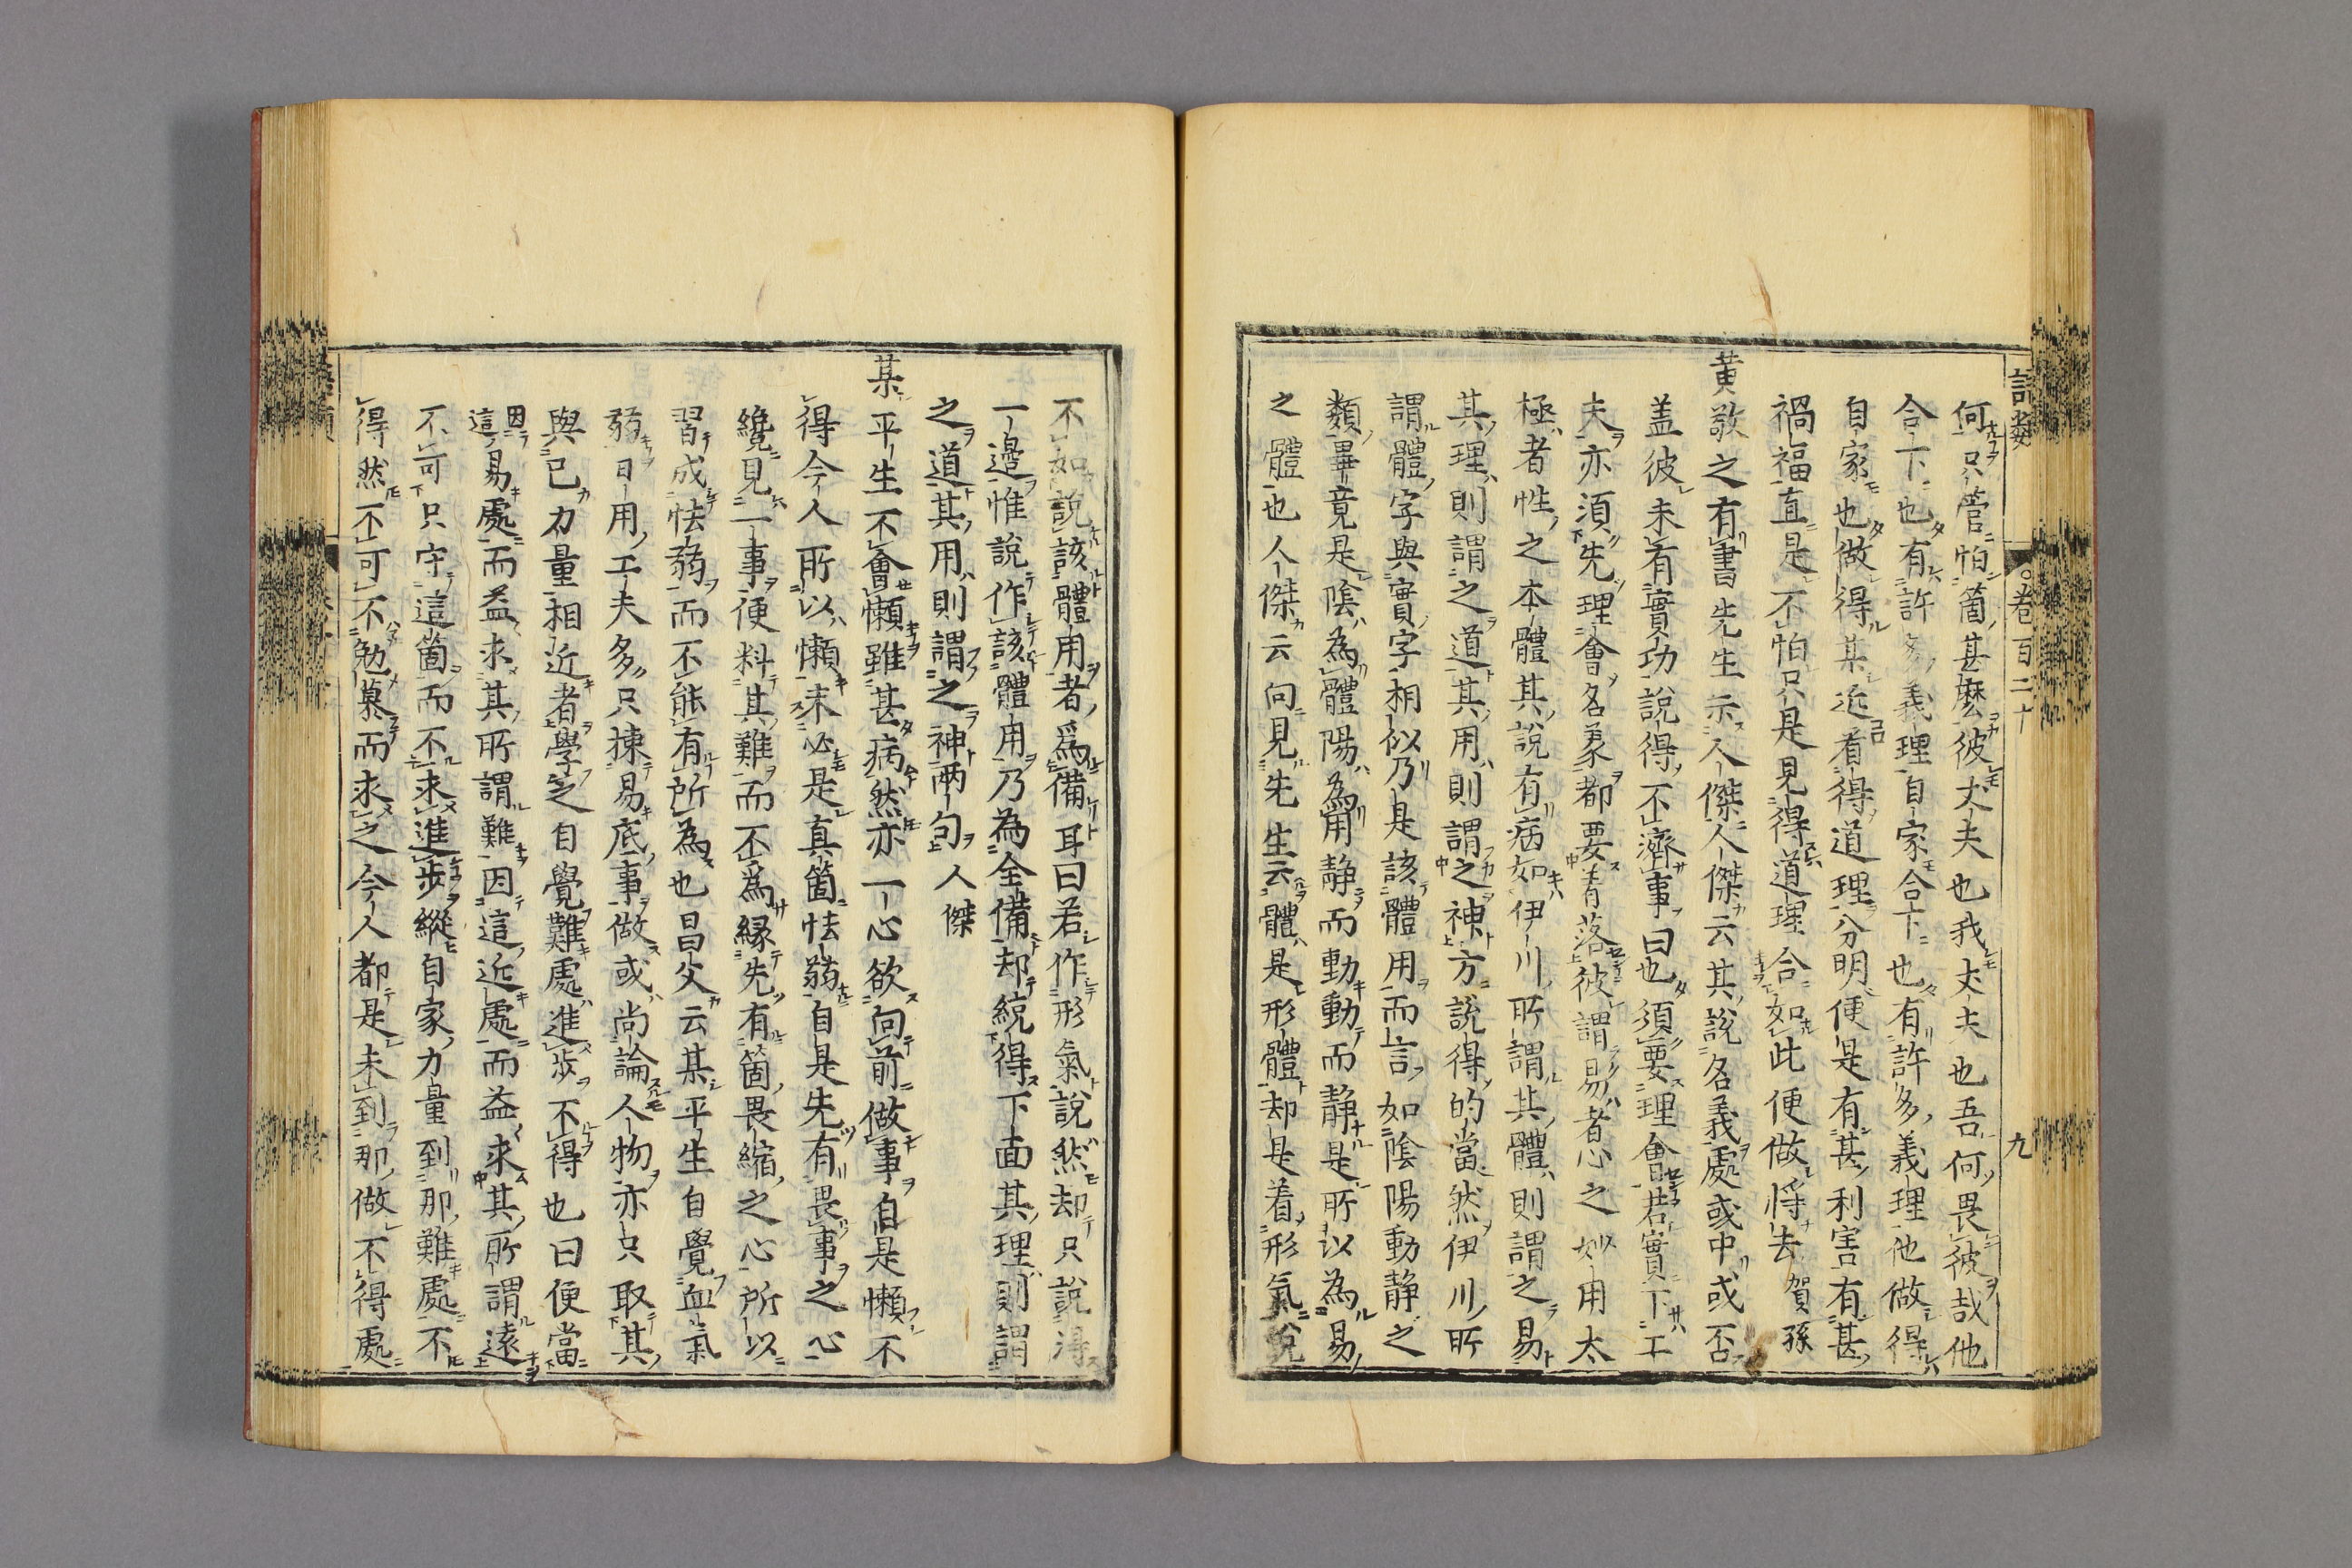 語類
卷百二十
九
何只管怕箇甚麽彼丈夫也我丈夫也吾何畏彼哉他
合下也有許多義理自家合下也有許多義理他做得
自家也做得某近看得道理分明便是有甚利害有甚
禍福直是不怕只是見得道理合如此便做將去賀孫
黄敬之有書先生示人傑人傑云其說名義處或中或否
盖彼未有實功說得不濟事曰也須要理會若實下工
夫亦須先理會名義都要着落彼謂易者心之妙用太
極者性之本體其說有病如伊川所謂其體則謂之易
其理則謂之道其用則謂之神方說得的當然伊川所
謂體字與實字相似乃是該體用而言如陰陽動静之
類畢竟是陰為體陽為用静而動動而静是所以為易
之體也人傑云向見先生云體是形體却是着形氣說
不如說該體用者爲備耳曰若作形氣說然却只說得
一邊惟說作該體用乃為全備却統得下面其理則謂
之道其用則謂之神兩句人傑
某平生不會懶雖甚病然亦一心欲向前做事自是懶不
得今人所以懶未必是真箇怯弱自是先有畏事之心
纔見一事便料其難而不爲緣先有箇畏縮之心所以
習成怯弱而不能有所為也昌父云某平生自覺血氣
弱日用工夫多只揀易底事做或尚論人物亦只取其
與己力量相近者學之自覺難處進步不得也曰便當
因這易處而益求其所謂難因這近處而益求其所謂遠
不可只守這箇而不求進步縱自家力量到那難處不
得然不可不勉慕而求之今人都是未到那做不得處